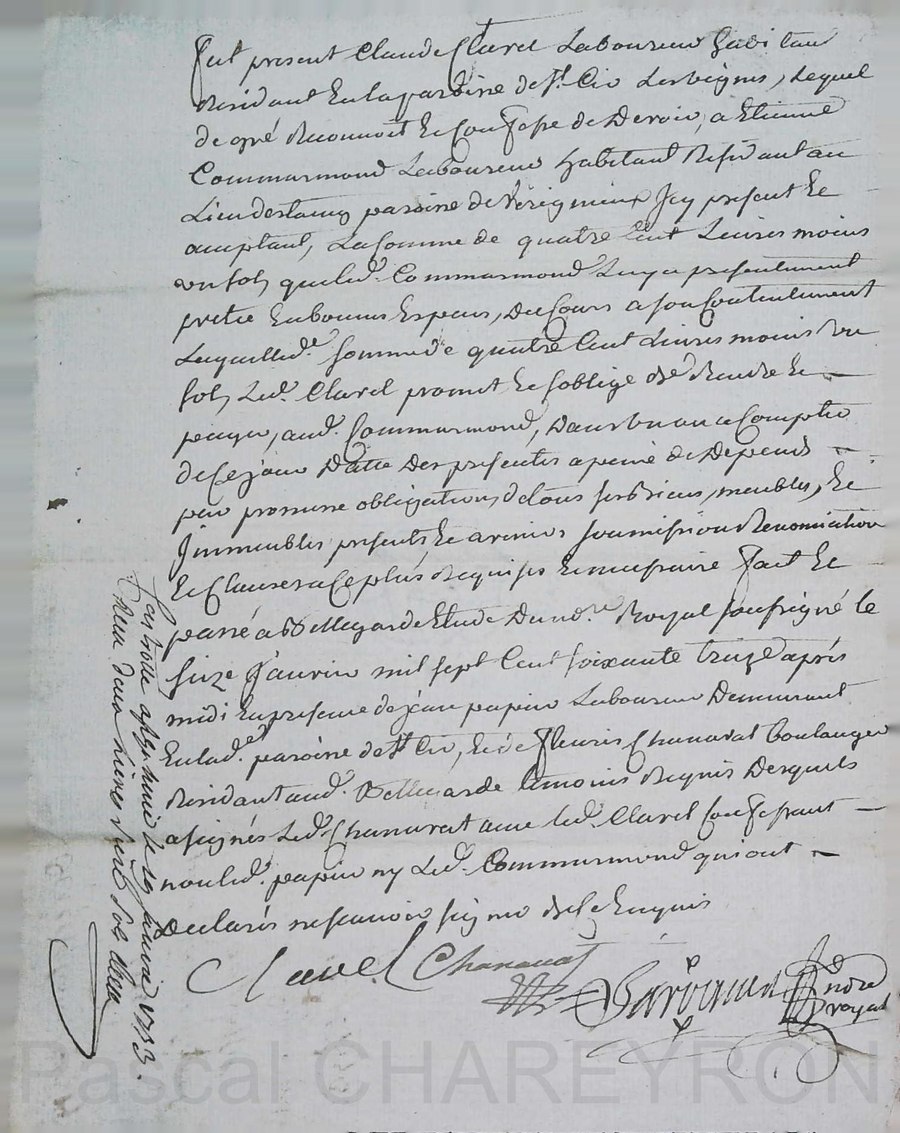 Fut present Claude Clavel Laboureur habitant
Residant En la paroisse de St. Cir Les vignes, Lequel
de gré Reconnoit Et Confesse de Devoir, a Etienne
Commarmond Laboureur habitant Residant au
Lieu paroisse de Verigneux Icy présent Et
acceptant, La somme de quatre Cent Livres moins
un sol, que led. Commarmond Luy a presentement
preté En bonnes Especes, du Cours a son Contentement
Laquelle d. somme de quatre Cent Livres moins un
sol, Led. Clavel promet Et soblige de Rendre Et
payer, aud. Commarmond, Dans un an a Compter
de Ce jour Datte Des presentes a peine de Depens
par promesse obligations, de tous ses Biens, meubles, Et
Immeubles presents Et avenir soumission Renonciation
Et Clauses a Ce plus Requises Et necessaire fait Et
passé a Bellegarde Etude Du no.re Royal soussigné le
seize Janvier mil sept Cent soixante treize après
midi En presence de jean papier Laboureur Demeurant
En lad. paroisse de St Cir, Et de fleuris Chanavat Boulanger
Residant aud. Bellegarde temoins Requis Desquels
a signés Led. Chanavat avec led. Clavel Confessant
non led. papier ny Led. Commarmond qui ont
Declarés ne scavoir signer de Ce Enquis
Clavel Chanavat
royal
janvier 1773.
Pascal CHAREYRON